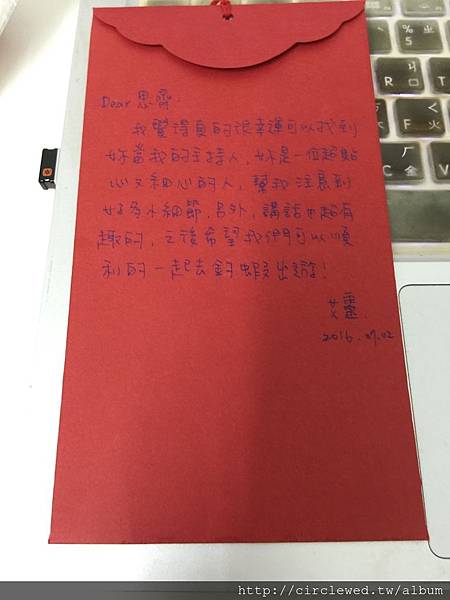 Dear 思齊:
我覺得真的很幸運可以找到
妳當我的主持人,妳是一位超貼
心又細心的人,幫我注意到
好多小細節,另外,講話也超有
趣的,之後希望我們可以順
利的一起去釣蝦出遊!
艾靈.
2016.07.02
R
ㄐ
F
ㄑ
ㄏ
金
http://circlewed.tw/album